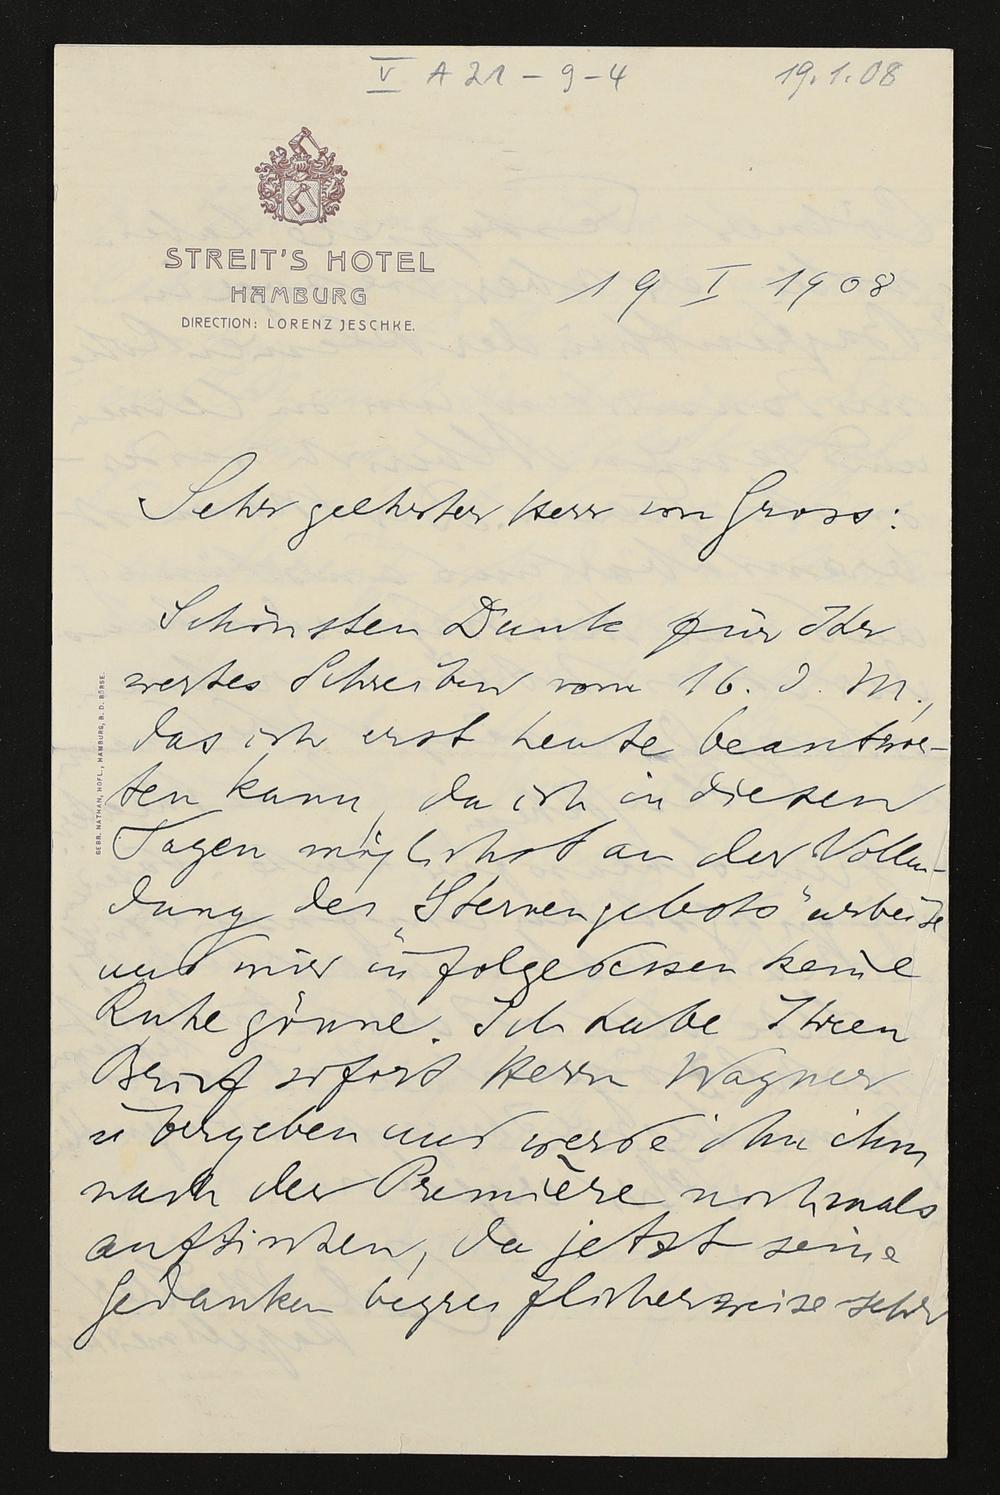 V A 21 - 9 - 4
19.1.08
STREIT'S HOTEL
HAMBURG
DIRECTION: LORENZ JESCHKE.
19 I 1908
Sehr geehrter Herr von Gross:
Schönsten Dank für Ihr
wertes Schreiben vom 16. d. M.,
das ich erst heute beantwor-
ten kann, da ich in diesen
Tagen möglichst an der Vollen-
dung des „Sternengebots" arbeite
und mir infolgedessen keine
Ruhe gönne. Ich habe Ihren
Brief sofort Herrn Wagner
übergeben und werde ihn ihm
nach der Première nochmals
auftischen, da jetzt seine
Gedanken begreiflicherweise sehr
GEBR. NATHAN, HOFL., HAMBURG, B. D. BÖRSE.